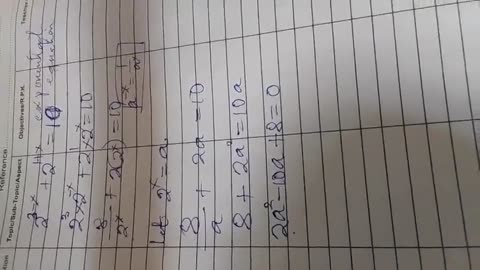 Reference
Topic/Sub-Topic/Aspect
Objectives/R.P.K.
exponential equation
2^{3-x} + 2^{1+x} = 10
2^3 x 2^{-x} + 2^1 x 2^x = 10
8/2^x + 2(2^x) = 10
a^{-x} = 1/a^x
let 2^x = a
8/a + 2a = 10
8 + 2a^2 = 10a
2a^2 - 10a + 8 = 0